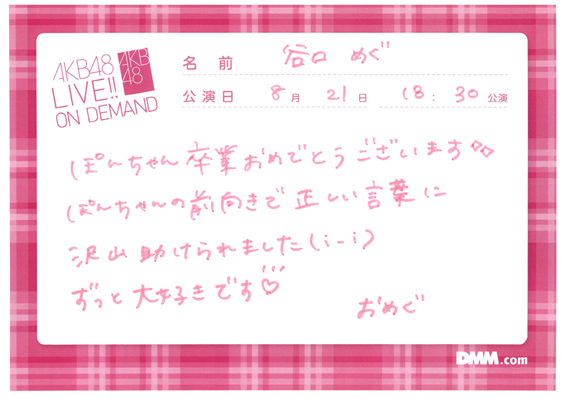 AKB48
LIVE!!
ON DEMAND
AKB
48
名前 谷口 めぐ
公演日 8月 21日 18:30 公演
ぽんちゃん卒業おめでとうございます♡♡
ぽんちゃんの前向きで正しい言葉に
沢山助けられました(i_i)
ずっと大好きです♡
おめぐ
DMM.com